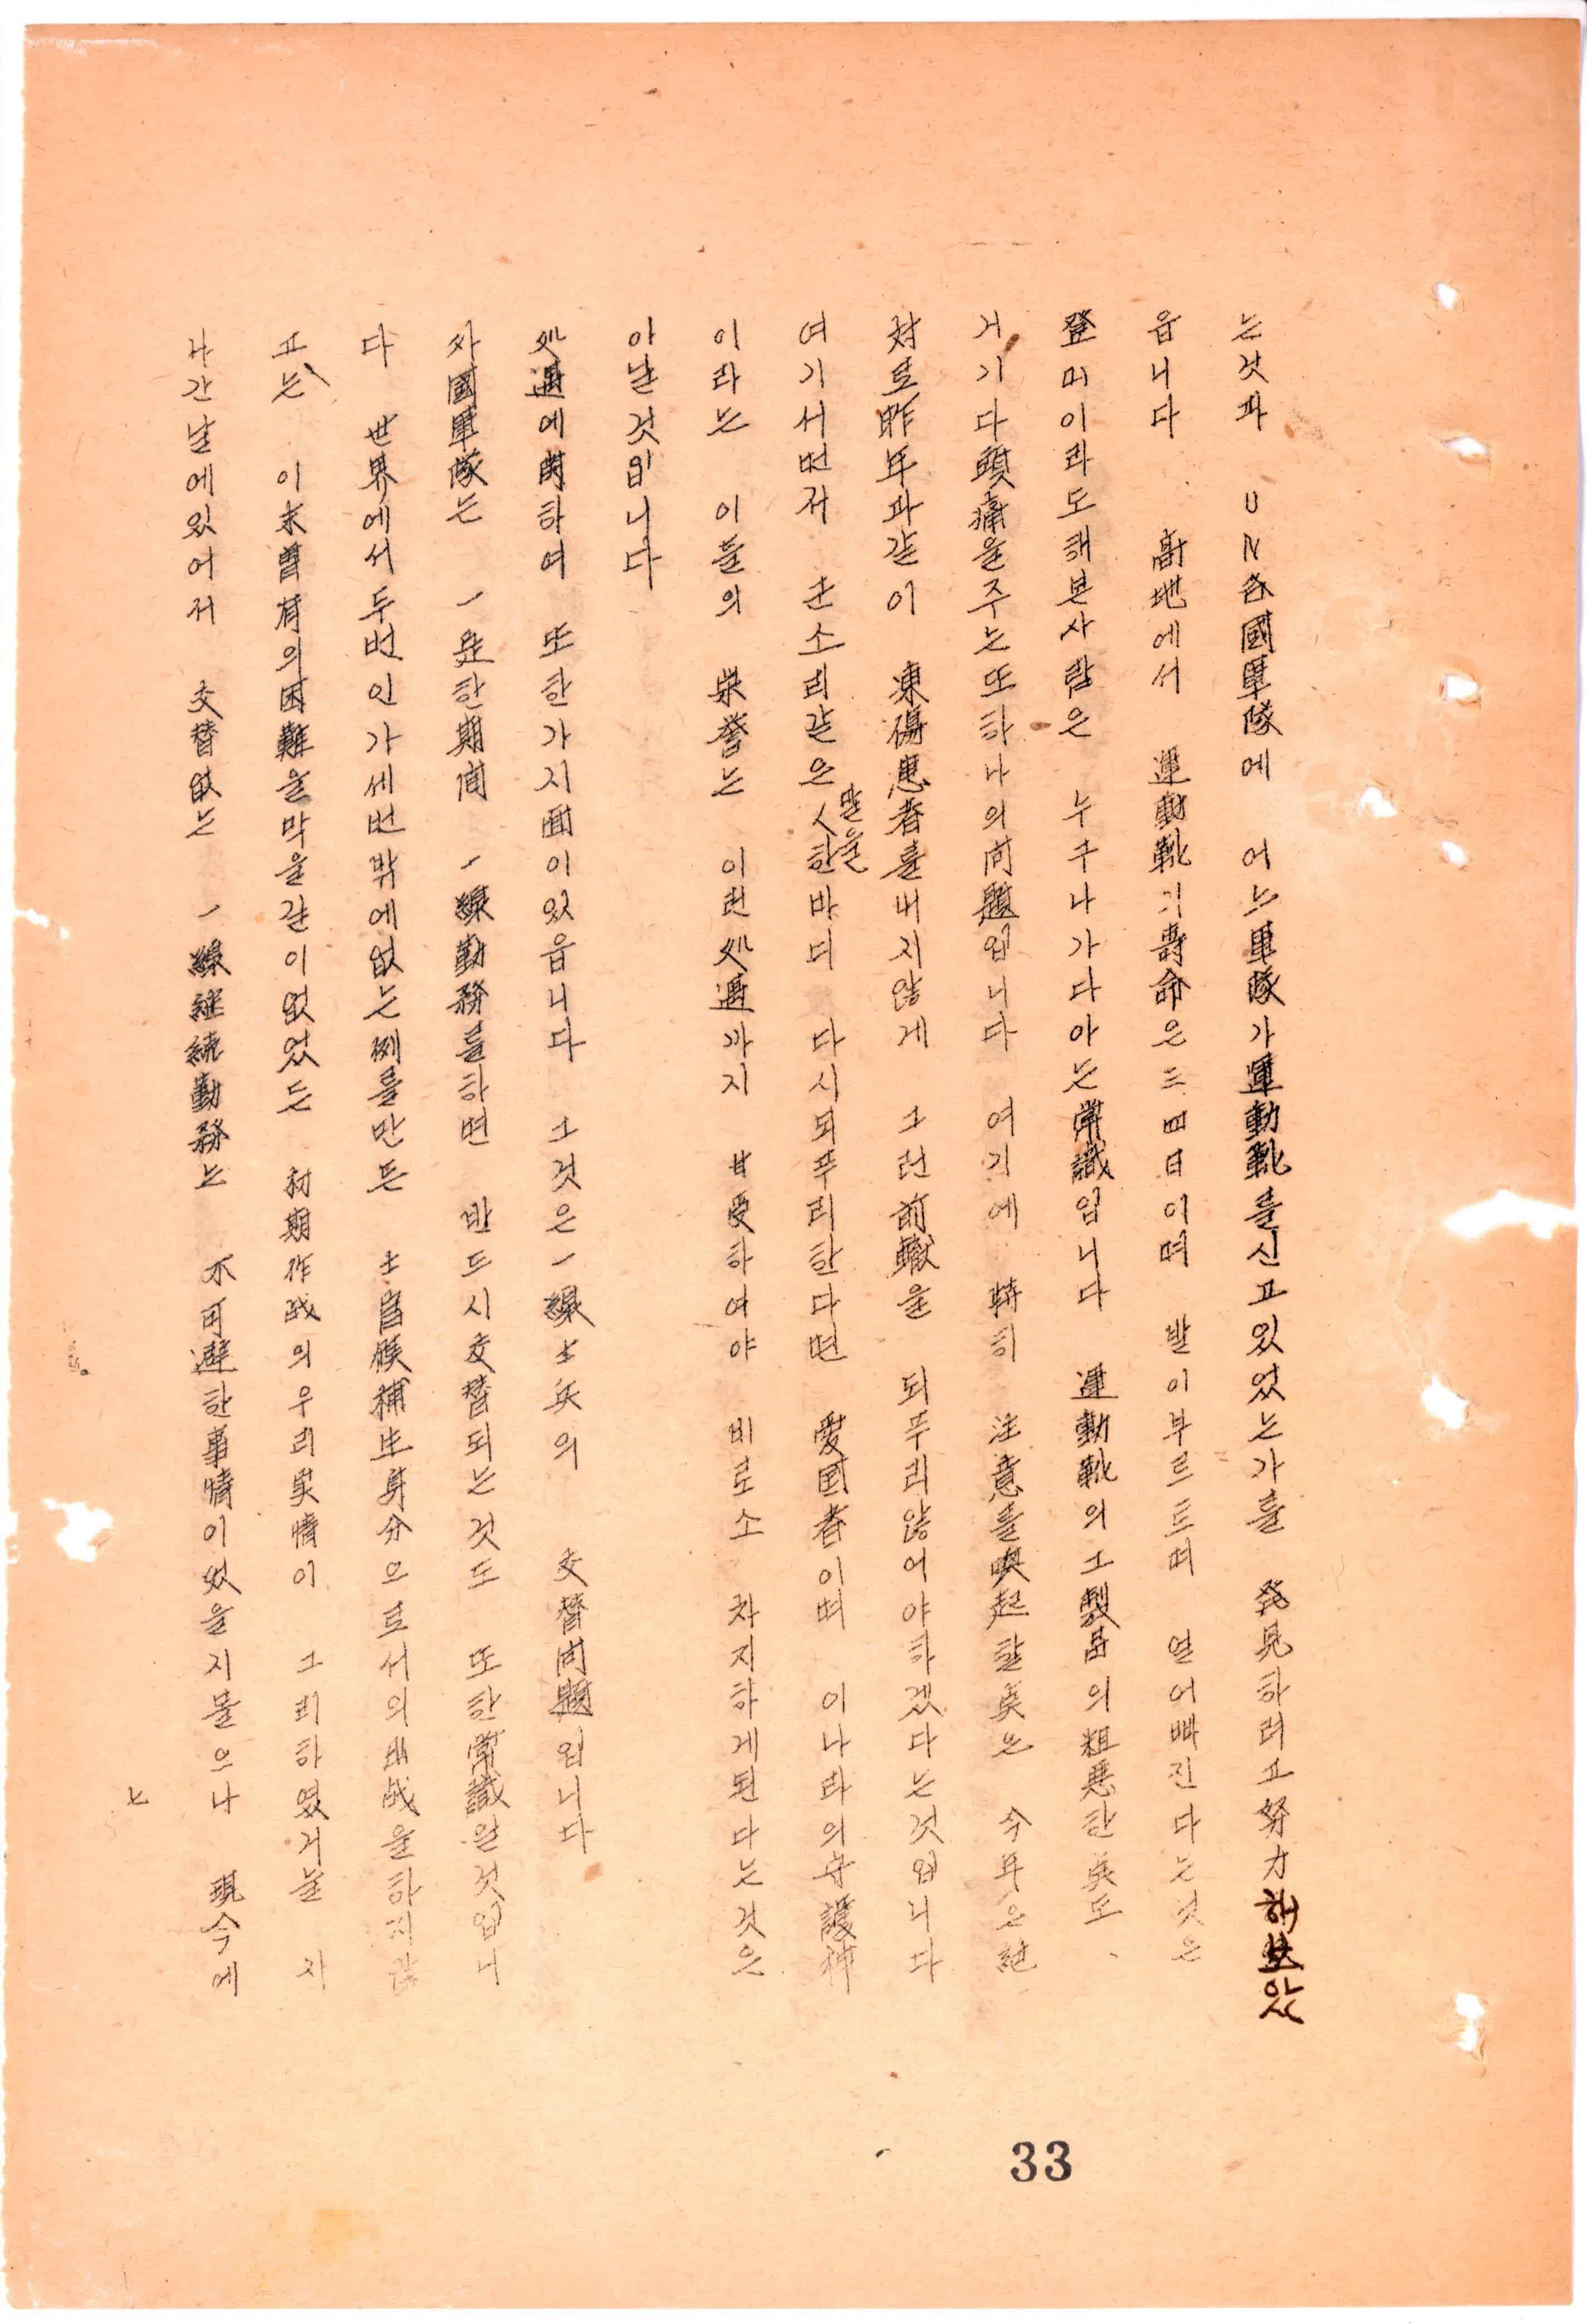 는것과 UN各國軍隊에 어느軍隊가運動靴를신고있었는가를 発見하려고努力해보았
읍니다 高地에서 運動靴기壽命은三四日이며 발이부르트며 얼어빠진다는것은
登미이라도해본사람은 누구나가다아는常識입니다 運動靴의그製品의粗悪한点도
거기다頭痛을주는또하나의問題입니다 여기에 特히 注意를喚起할点은 今年은絶
対로昨年과같이 凍傷患者를내지않게 그런前轍을 되푸리않어야하겠다는것입니다
여기서먼저 군소리같은말을한바디 다시되푸리한다면 愛国者이며 이나라의守護神
이라는 이들의 栄誉는 이런処遇까지 甘受하여야 비로소 차지하게된다는것은
아닐것입니다
処遇에関하여 또한가지面이있읍니다 그것은一線士兵의 交替問題입니다
各國軍隊는 一定한期間 一線勤務를하면 반드시交替되는것도 또한常識일것입니
다 世界에서두번인가세번밖에없는例를만든 士官候補生身分으로서의出战을하지않
고는 이未曽有의困難을막을길이없었든 初期作战의우리実情이 그리하였거늘 지
나간날에있어저 交替없는 一線継続勤務는 不可避한事情이있을지몰으나 現今에
는
33